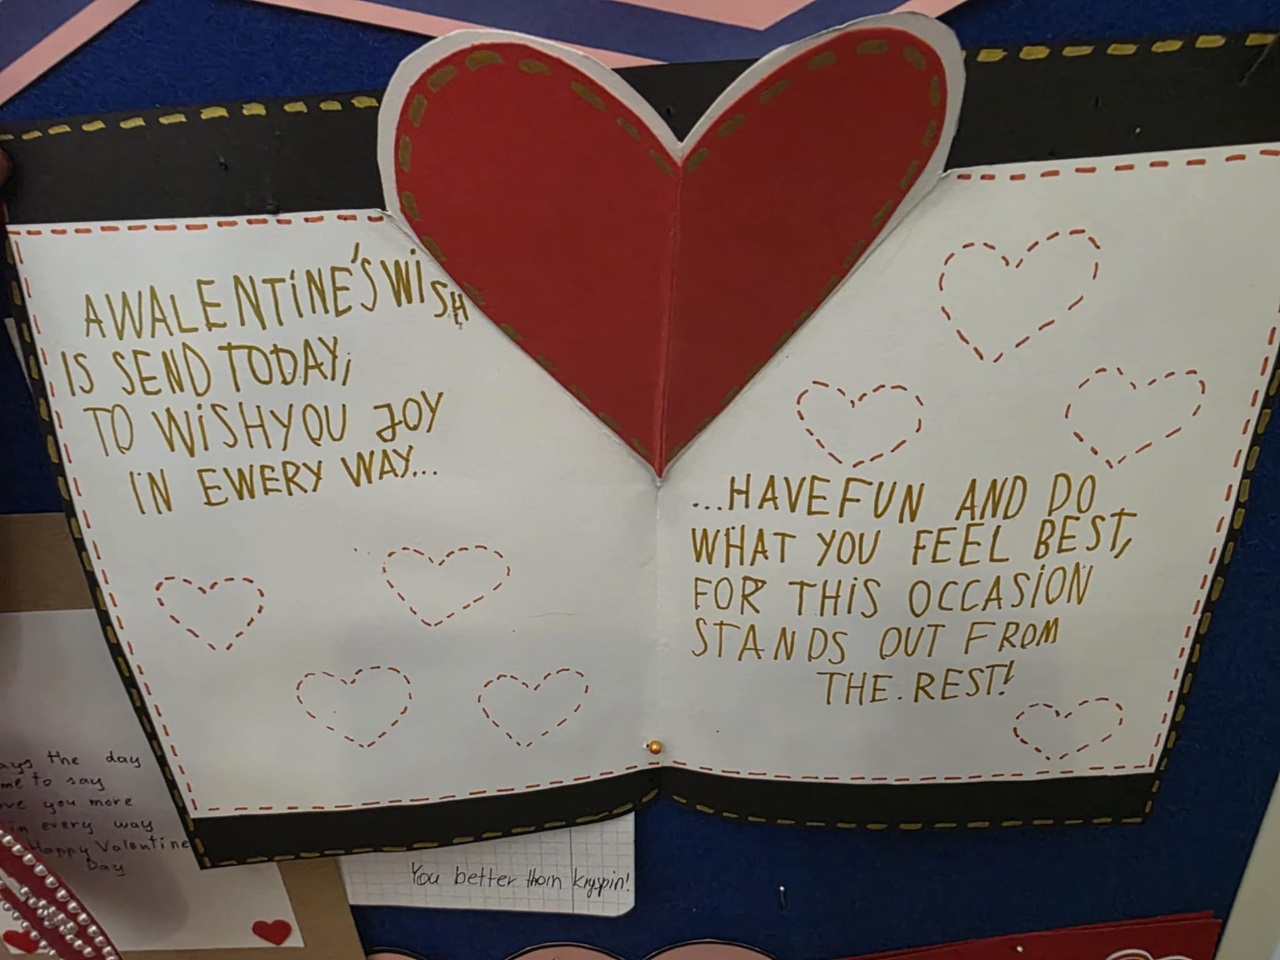 A WALENTINE'S WISH
IS SEND TODAY,
TO WISH YOU JOY
IN EWERY WAY...
...HAVE FUN AND DO
WHAT YOU FEEL BEST,
FOR THIS OCCASION
STANDS OUT FROM
THE REST!
ays the day
me to say
ove you more
in every way
Happy Valentine
Day
You better than kryspin!